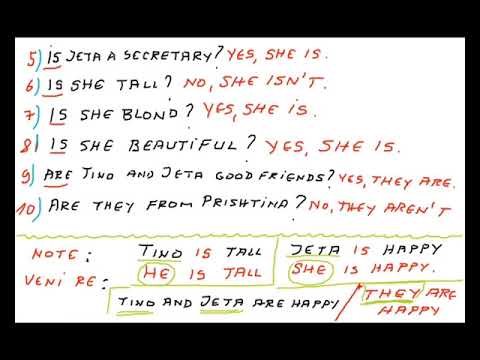 5) IS JETA A SECRETARY? YES, SHE IS.
6) IS SHE TALL? NO, SHE ISN'T.
7) IS SHE BLOND? YES, SHE IS.
8) IS SHE BEAUTIFUL? YES, SHE IS.
9) ARE TINO AND JETA GOOD FRIENDS? YES, THEY ARE.
10) ARE THEY FROM PRISHTINA? NO, THEY AREN'T
NOTE: TINO IS TALL JETA IS HAPPY
VENI RE: HE IS TALL SHE IS HAPPY.
TINO AND JETA ARE HAPPY / THEY ARE
HAPPY